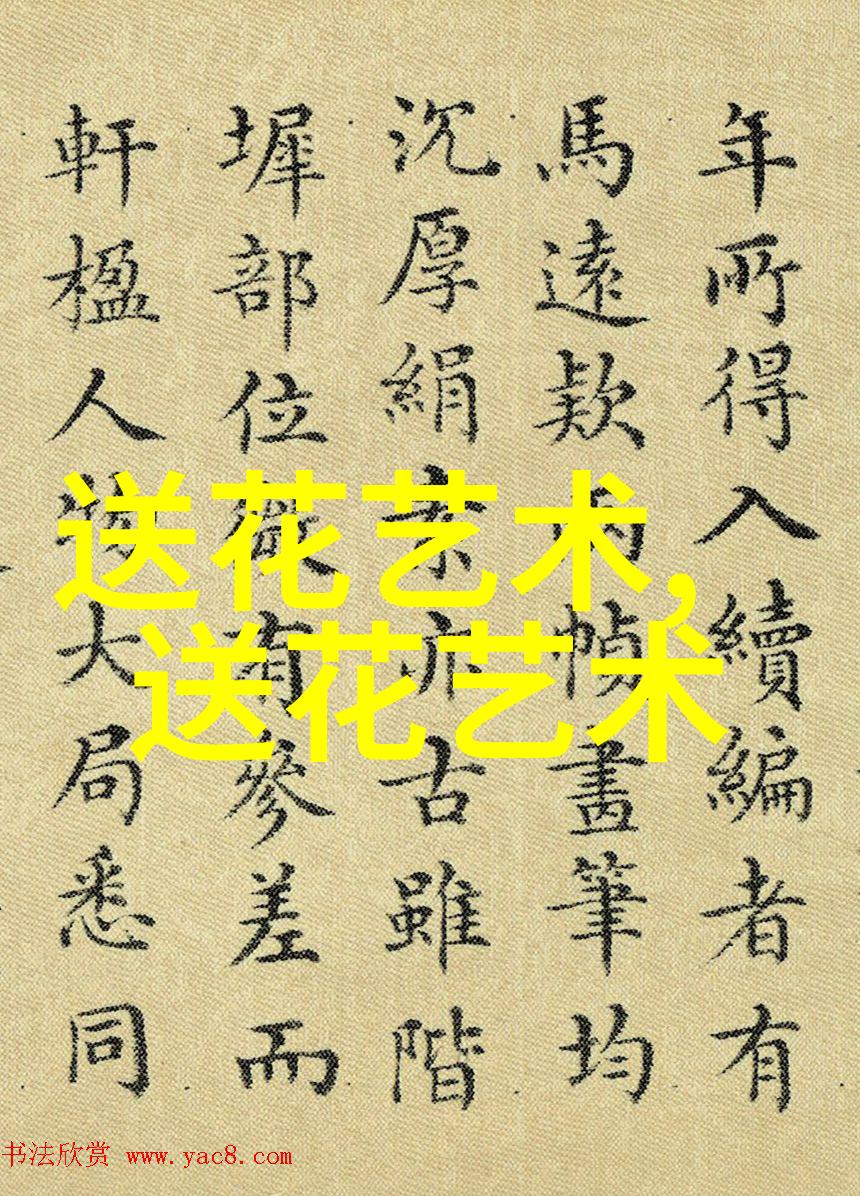 年所得入續編者有
馬遠欵兩幀畫筆均
沉厚絹素亦古雖階
墀部位微有參差而
軒楹人物大局悉同
送花艺术,
送花艺术
书法欣赏 www.yac8.com